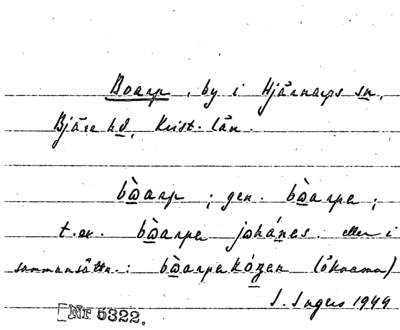 Boarp, by i Hjärnarps sn,
Bjäre hd, Krist. län.
bὼarp ; gen. bὼarpa ;
t.ex. bὼarpa johánes. eller i
sammansättn.: bὼarpa
I. Ingers 1949
[Nr 5322.